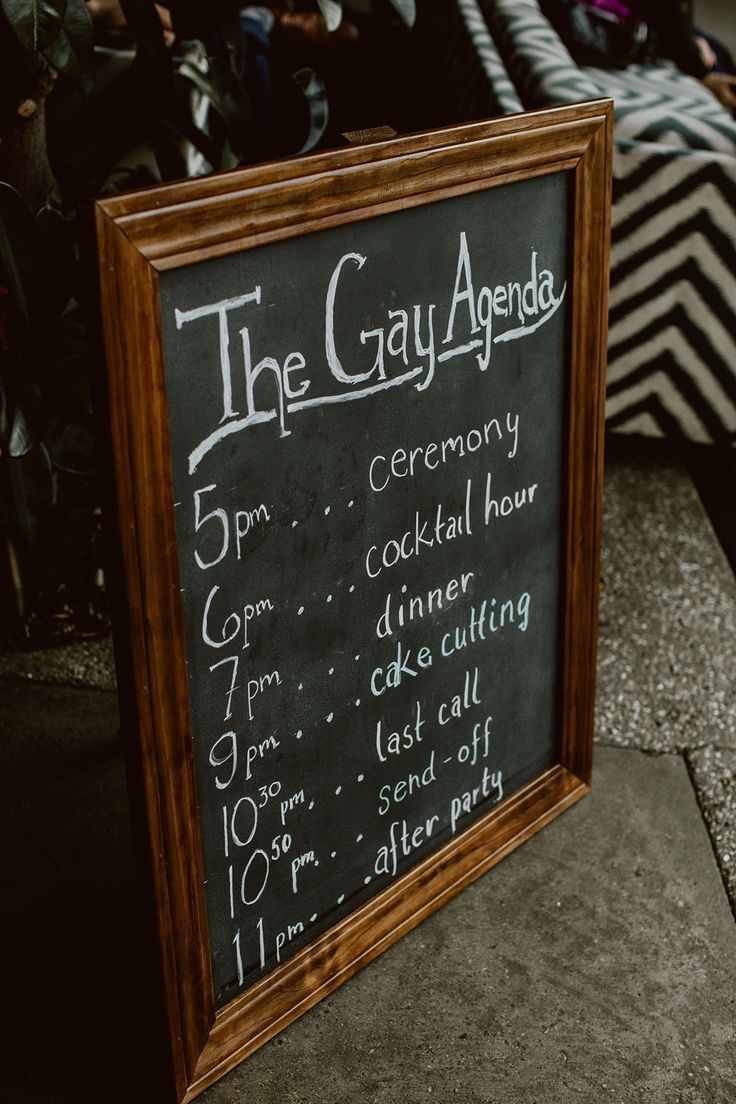 The Gay Agenda
5pm . . . ceremony
6pm . . . cocktail hour
7pm . . . dinner
9pm . . . cake cutting
10 30 pm . . . last call
10 50 pm . . . send-off
11pm . . . after party